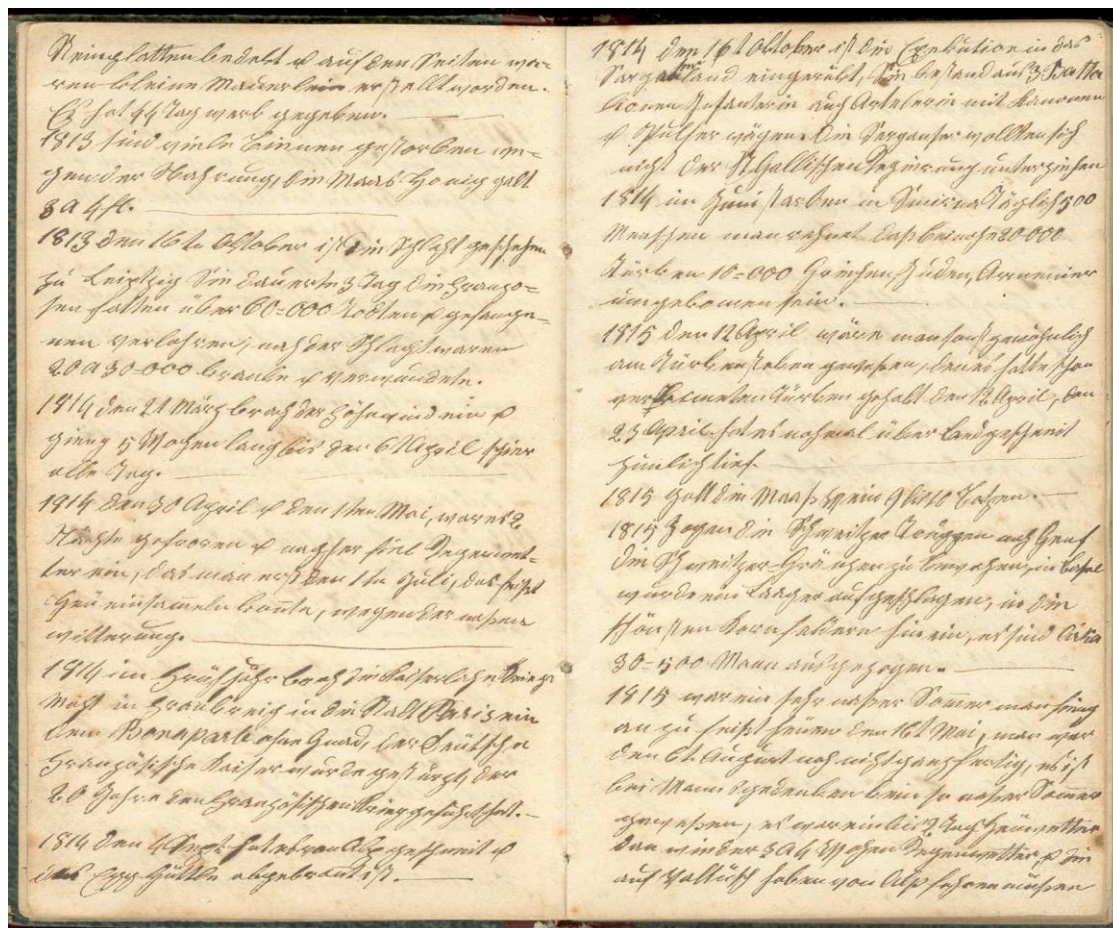 Steinplatten bedekt & auf den Seiten wa=
ren kleine Mäuerlein erstellt worden.
Es hat 44 Tagwerk gegeben.
1813 sind viele Binnen gestorben we=
gen der Nahrung, die Maas Honig galt
3 a 4 fl.
1813 den 16te Oktober ist die Schlacht geschehen
zu Leiptzig Sie dauerte 3 Tag die Franzo=
sen hatten über 60=000 Todten & gefange=
nen verlohren, nach der Schlacht waren
20 a 30-000 kranke & verwundete.
1814 den 21 März brach der Föhnwind ein &
gieng 5 Wochen lang bis den 6t April schier
alle Tag.
1814 den 30 April & den 1ten Mai, war es 2
Nächte gefroren & nachher fiel Regenwet=
ter ein, das man erst den 1te Juli, das feißt
Heu einsameln konte, wegen der naßen
witterung.
1814 im Frühjahr brach die Kaiserliche Kriegs
Macht in Frankreich in die Stadt Paris ein
dem Bonaparte ohne Gnad, der Deütsche
Französische Kaiser wurde gestürzt, der
20 Jahre den Französischen Krieg geführt hat.
1814 den 4 Sept hat es von Alp geschneit &
das Egg Hüttle abgebrant ist.
1814 den 16t Oktober ist die Exekution in das
Sarganserland eingerükt, Sie bestand aus 3 Batta
lionen Infanterie auch Artelerie mit Kanonen
& Pulfer wägen. Die Sarganser wollten sich
nicht der St Gallischen Regierung unterziehen
1814 im Juni starben in Smirna Täglich 500
Menschen man rechnet das beinahe 20-000
Türken 10=000 Griechen, Jüden, Armenier
umgekomen sein.
1815 den 12 April wäre man sonst gewöhnlich
am Türken steken gewesen, den es hatte schon
verkeimeten Türken gehabt den 12 April, den
23 April hat es nochmal über Land geschneit
zimlich tief.
1815 galt die Maaß Wein 9 bis 10 Batzen.
1815 Zogen die Schweitzer Truppen nach Genf
die Schweitzer Gräntzen zu bewachen, in Basel
wurde ein Laager aufgeschlagen, in die
schönsten Kornfeldern hinein, es sind Cirka
30=500 Mann ausgezogen.
1815 war ein sehr naßer Sommer man fieng
an zu feißt heuen den 16t Mai, man war
den 6t August noch nicht ganz fertig, es ist
bei Manns gedenken kein so naßer Sommer
gewesen, es war ein bis 2 Tag Heuwetter
dan wieder 3 a 4 Wochen Regenwetter & die
auf Valtüsch haben von Alp fahren müßen